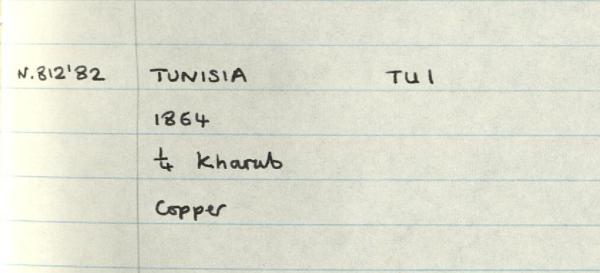 N.812'82 TUNISIA TU1
1864
¼ Kharub
Copper